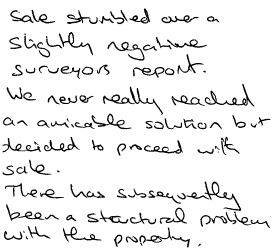 Sale stumbled over a
slightly negative
surveyors report.
We never really reached
an amicable solution but
decided to proceed with
sale.
There has subsequently
been a structural problem
with the property.